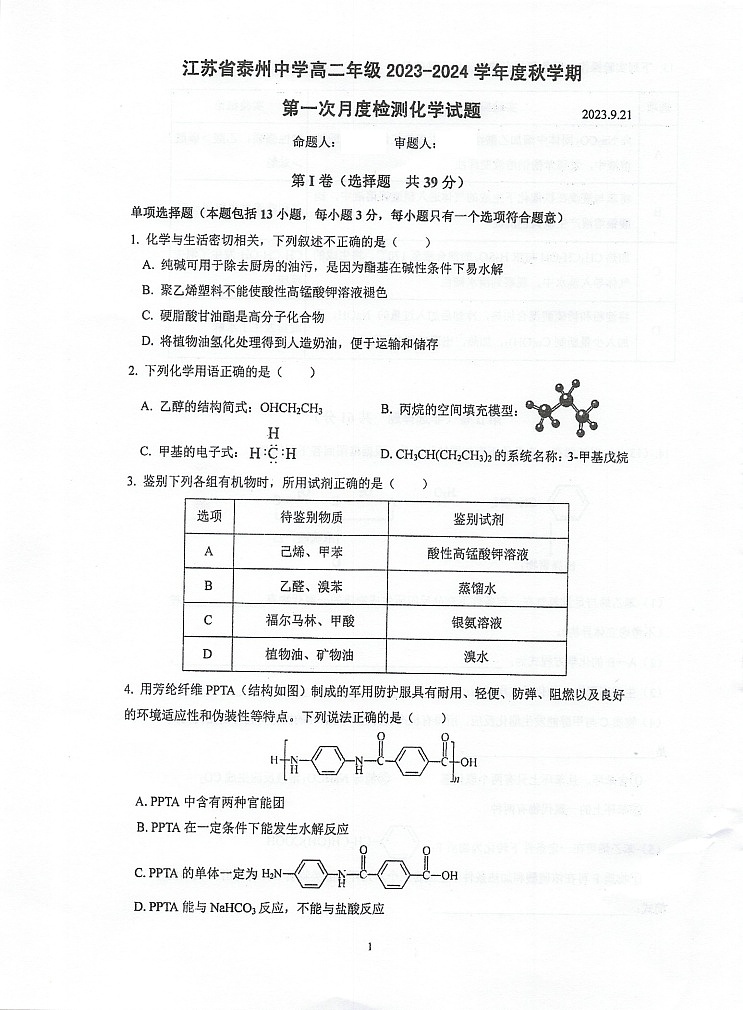 江苏省泰州中学高二年级 2023-2024 学年度秋学期
第一次月度检测化学试题 2023.9.21
命题人: 审题人:
第 I 卷(选择题 共 39 分)
单项选择题(本题包括 13 小题,每小题 3 分,每小题只有一个选项符合题意)
1. 化学与生活密切相关,下列叙述不正确的是( )
A. 纯碱可用于除去厨房的油污,是因为酯基在碱性条件下易水解
B. 聚乙烯塑料不能使酸性高锰酸钾溶液褪色
C. 硬脂酸甘油酯是高分子化合物
D. 将植物油氢化处理得到人造奶油,便于运输和储存
2. 下列化学用语正确的是( )
A. 乙醇的结构简式:OHCH2CH3 B. 丙烷的空间填充模型:
H
C. 甲基的电子式: H:C:H D. CH3CH(CH2CH3)2 的系统名称:3-甲基戊烷
3. 鉴别下列各组有机物时,所用试剂正确的是( )
选项 待鉴别物质 鉴别试剂
A 己烯、甲苯 酸性高锰酸钾溶液
B 乙醛、溴苯 蒸馏水
C 福尔马林、甲酸 银氨溶液
D 植物油、矿物油 溴水
4. 用芳纶纤维 PPTA(结构如图)制成的军用防护服具有耐用、轻便、防弹、阻燃以及良好
的环境适应性和伪装性等特点。下列说法正确的是( )
O O
H N N C C OH
H H n
A. PPTA 中含有两种官能团
B. PPTA 在一定条件下能发生水解反应
O O
C. PPTA 的单体一定为 H2N N C C OH
H
D. PPTA 能与 NaHCO3 反应,不能与盐酸反应
1